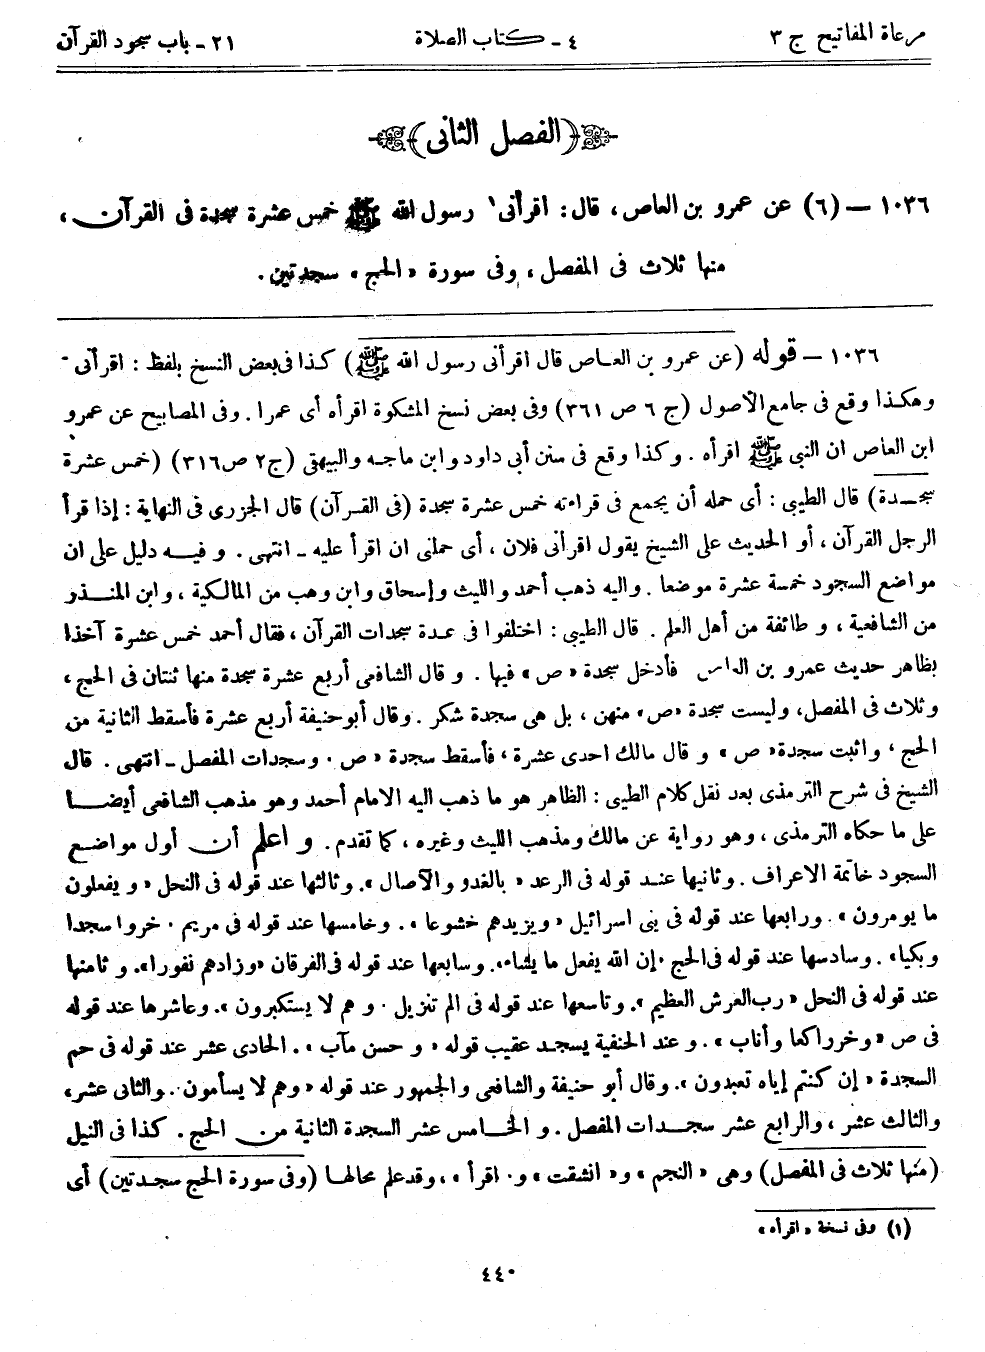 مرعاة المفاتيح ج ٣
٤ - كتاب الصلاة
٢١ - باب سجود القرآن
(الفصل الثانى)
١٠٣٦ – (٦) عن عمرو بن العاص، قال: اقرأنى١ رسول الله ﷺ خمس عشرة سجدة فى القرآن،
منها ثلاث فى المفصل، وفى سورة «الحج» سجدتين.
١٠٣٦ – قوله (عن عمرو بن العاص قال اقرأنى رسول الله ﷺ) كذا فى بعض النسخ بلفظ: اقرأنى-
وهكذا وقع فى جامع الأصول (ج ٦ ص ٣٦١) وفى بعض نسخ المشكوة اقرأه أى عمرا. وفى المصابيح عن عمرو
ابن العاص ان النبى ﷺ اقرأه. وكذا وقع فى سنن أبى داود وابن ماجه والبيهقى (ج٢ ص٣١٦) (خمس عشرة
سجدة) قال الطيبى: أى حمله أن يجمع فى قراءته خمس عشرة سجدة (فى القرآن) قال الجزرى فى النهاية: إذا قرأ
الرجل القرآن، أو الحديث على الشيخ يقول اقرأنى فلان، أى حملنى ان اقرأ عليه - انتهى. وفيه دليل على ان
مواضع السجود خمسة عشرة موضعا. واليه ذهب أحمد والليث وإسحاق وابن وهب من المالكية، وابن المنذر
من الشافعية، وطائفة من أهل العلم. قال الطيبى: اختلفوا فى عدة سجدات القرآن، فقال أحمد خمس عشرة آخذا
بظاهر حديث عمرو بن العاص فأدخل سجدة «ص» فيها. وقال الشافعى أربع عشرة سجدة منها ثنتان فى الحج،
وثلاث فى المفصل، وليست سجدة «ص» منهن، بل هى سجدة شكر. وقال أبو حنيفة أربع عشرة فأسقط الثانية من
الحج، واثبت سجدة «ص» وقال مالك احدى عشرة، فأسقط سجدة «ص» وسجدات المفصل - انتهى. قال
الشيخ فى شرح الترمذى بعد نقل كلام الطيبى: الظاهر هو ما ذهب اليه الامام أحمد وهو مذهب الشافعى أيضا
على ما حكاه الترمذى، وهو رواية عن مالك ومذهب الليث وغيره، كما تقدم. واعلم أن أول مواضع
السجود خاتمة الاعراف. وثانيها عند قوله فى الرعد «بالغدو والآصال». وثالثها عند قوله فى النحل «ويفعلون
ما يومرون». ورابعها عند قوله فى بنى اسرائيل «ويزيدهم خشوعا». وخامسها عند قوله فى مريم «خروا سجدا
وبكيا». وسادسها عند قوله فى الحج «إن الله يفعل ما يشاء». وسابعها عند قوله فى الفرقان «وزادهم نفورا». وثامنها
عند قوله فى النحل «رب العرش العظيم». وتاسعها عند قوله فى الم تنزيل «وهم لا يستكبرون». وعاشرها عند قوله
فى ص «وخر راكعا وأناب». وعند الحنفية يسجد عقيب قوله «وحسن مآب». الحادى عشر عند قوله فى حم
السجدة «إن كنتم إياه تعبدون». وقال أبو حنيفة والشافعى والجمهور عند قوله «وهم لا يسأمون». والثانى عشر،
والثالث عشر، والرابع عشر سجدات المفصل. والخامس عشر السجدة الثانية من الحج. كذا فى النيل
(منها ثلاث فى المفصل) وهى «النجم» و«انشقت» و«اقرأ»، وقد علم محالها (وفى سورة الحج سجدتين) أى
(١) وفى نسخة «اقرأه»
٤٤٠